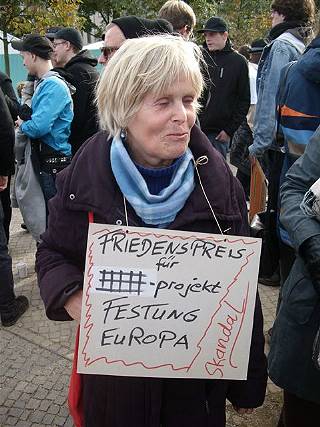 FRIEDENSPREIS
für
-projekt
FESTUNG
EUROPA
Skandal